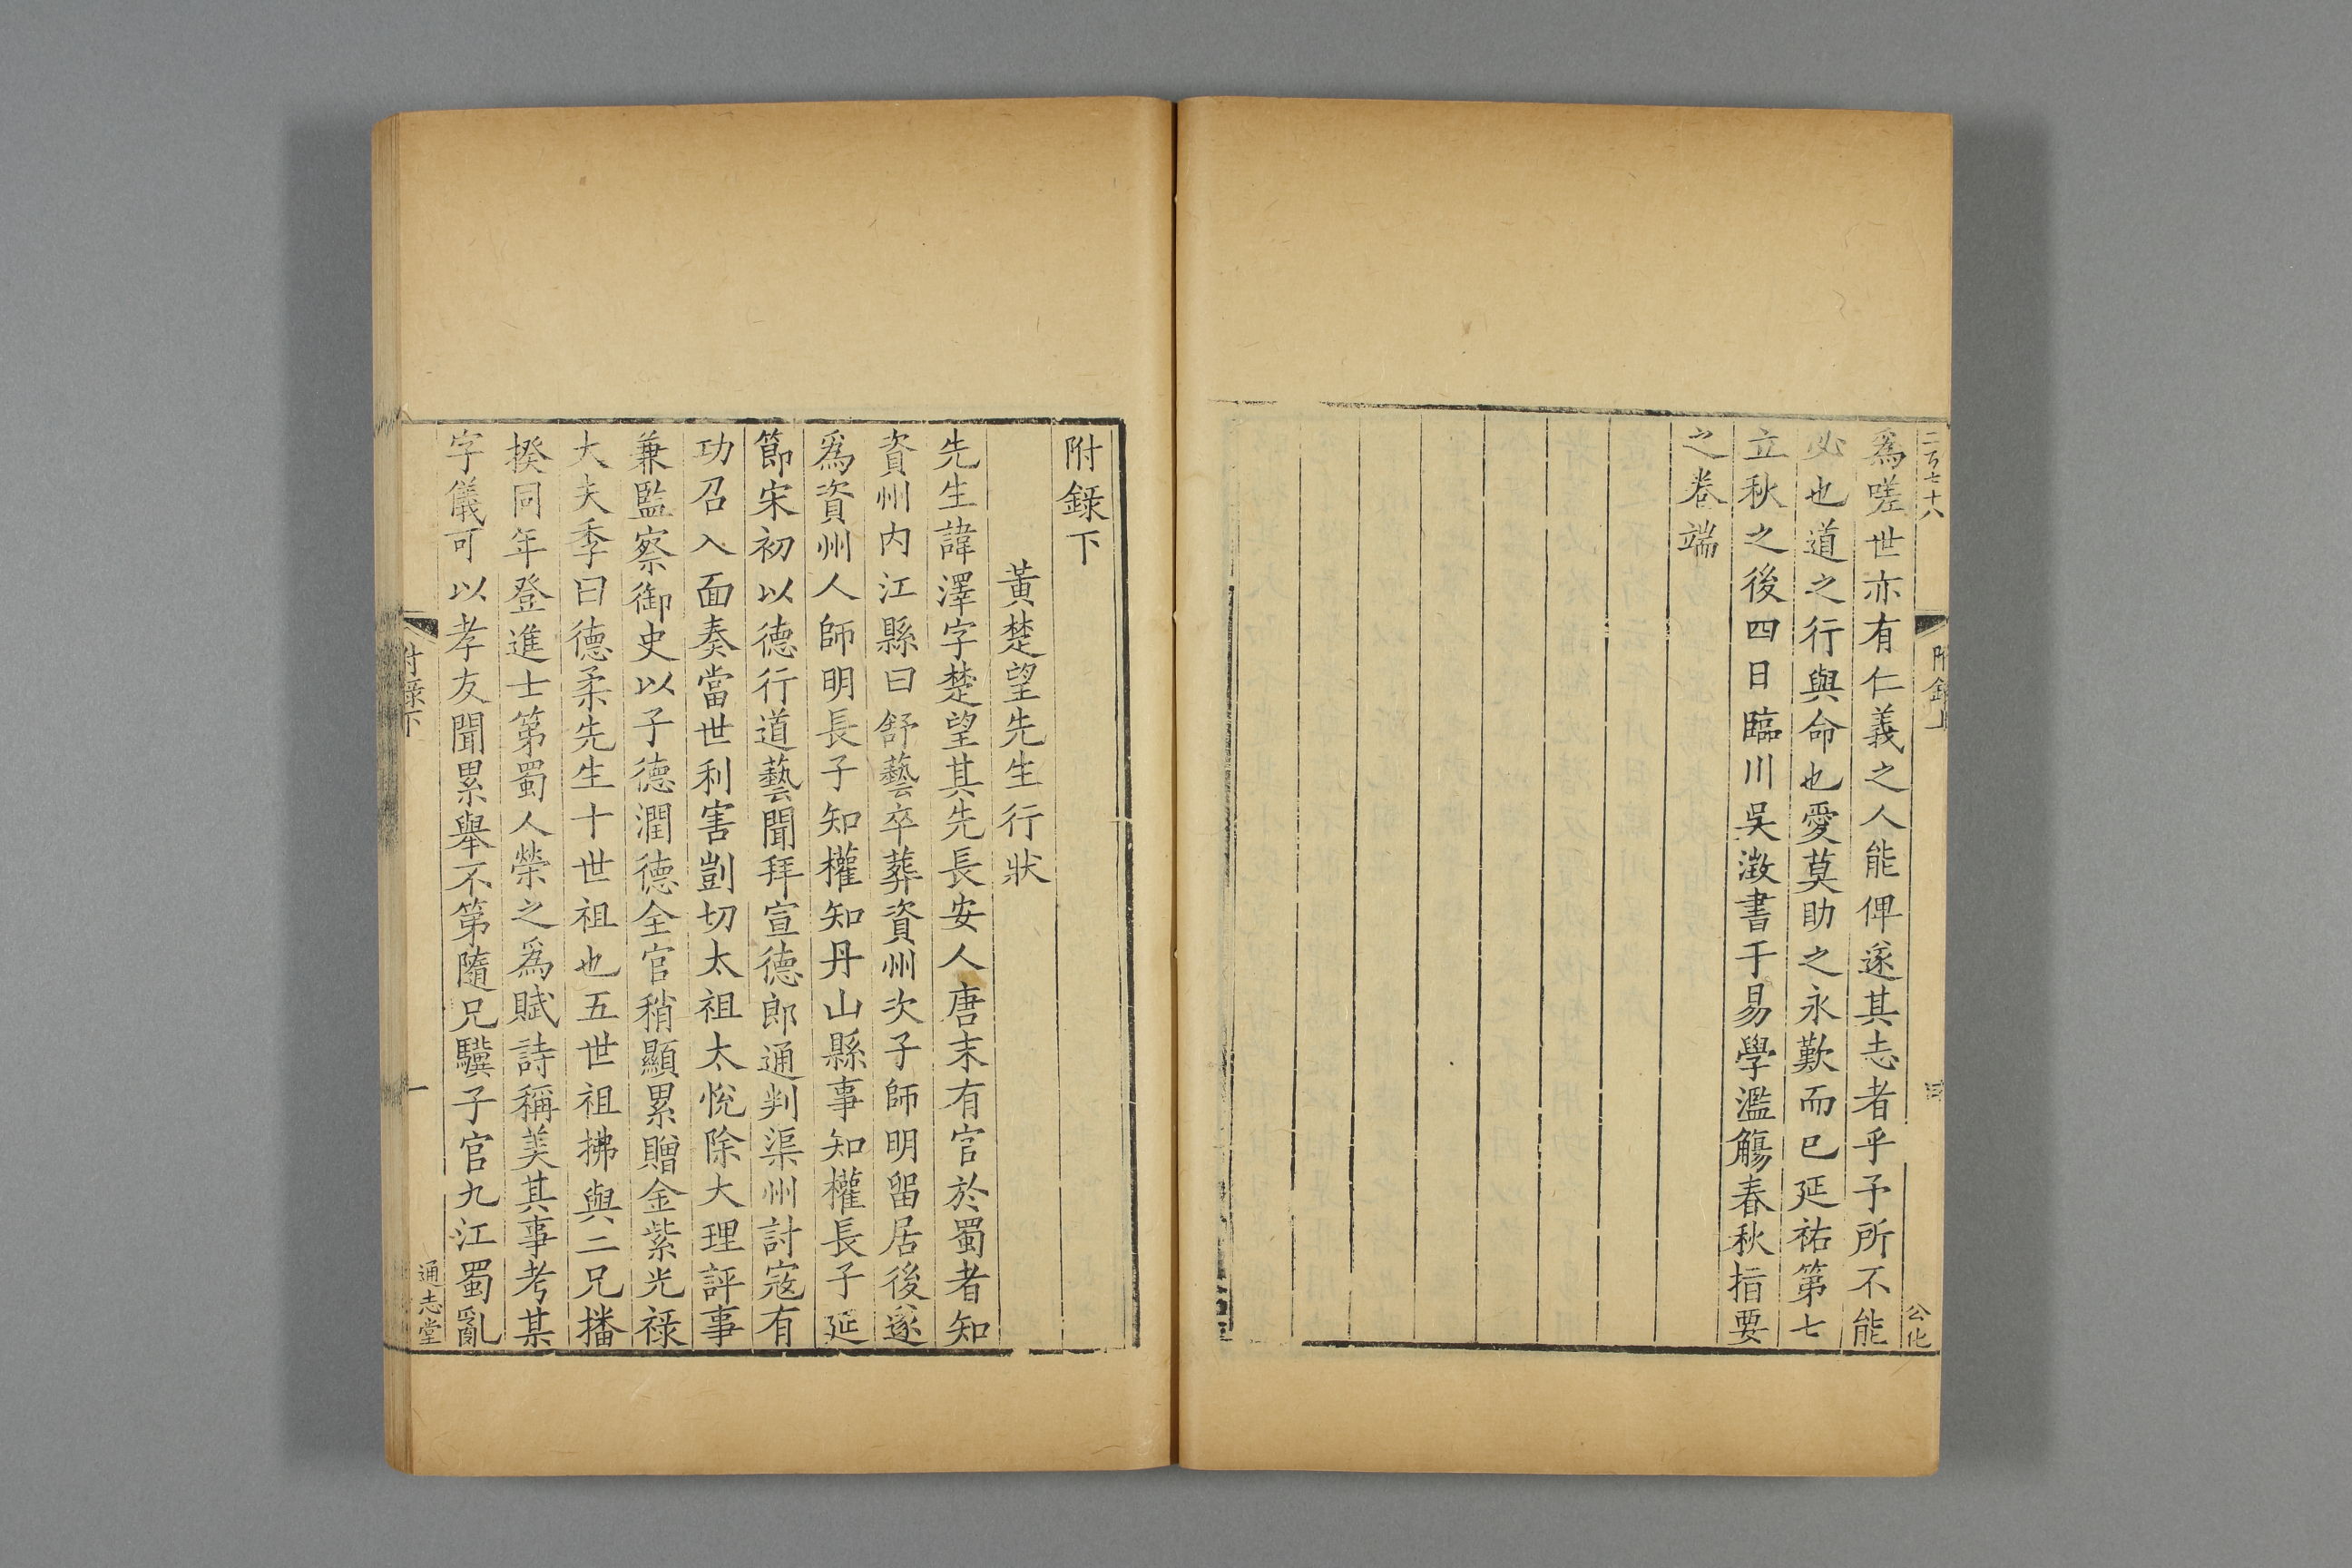 二百七十八
附錄上
公化
爲嗟世亦有仁義之人能俾遂其志者乎予所不能
必也道之行與命也愛莫助之永歎而已延祐第七
立秋之後四日臨川吳澂書于易學濫觴春秋指要
之卷端
附錄下
黃楚望先生行狀
先生諱澤字楚望其先長安人唐末有官於蜀者知
資州內江縣曰舒藝卒葬資州次子師明留居後遂
爲資州人師明長子知權知丹山縣事知權長子延
節宋初以德行道藝聞拜宣德郎通判渠州討寇有
功召入面奏當世利害剴切太祖大悅除大理評事
兼監察御史以子德潤德全官稍顯累贈金紫光祿
大夫季曰德柔先生十世祖也五世祖拂與二兄播
揆同年登進士第蜀人榮之爲賦詩稱美其事考某
字儀可以孝友聞累舉不第隨兄驥子官九江蜀亂
附錄下
一
通志堂